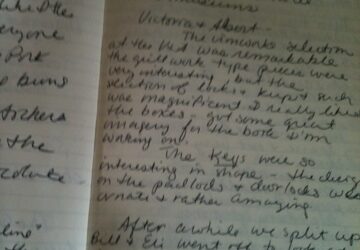 museums
Victoria & Albert -
The ironworks selection
at the V&A was remarkable
the quill work type pieces were
very interesting, but the
selection of locks & keys & such
was magnificent I really liked
the boxes - got some great
imagery for the book I'm
working on.
The keys were so
interesting in shape - the
on the padlocks & door locks was
ornate & rather amazing
After awhile we split up
Bill & Eri went off to
everyone
the
line"